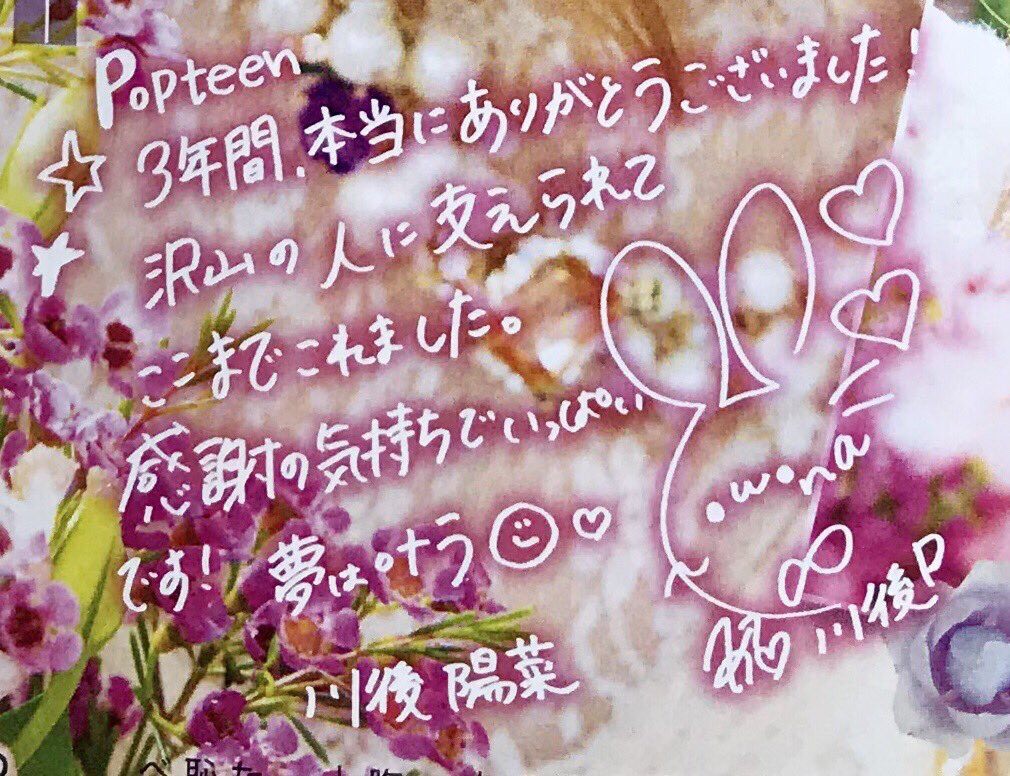 Popteen
3年間、本当にありがとうございました!
沢山の人に支えられて
ここまでこれました。
感謝の気持ちでいっぱい
です! 夢は叶う
川後陽菜
川後P